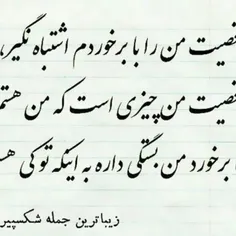 من را با برخوردم اشتباه نگیر،
من چیزی است که من هستم
برخورد من بستگی داره به اینکه تو کی
زیباترین جمله شکسپیر